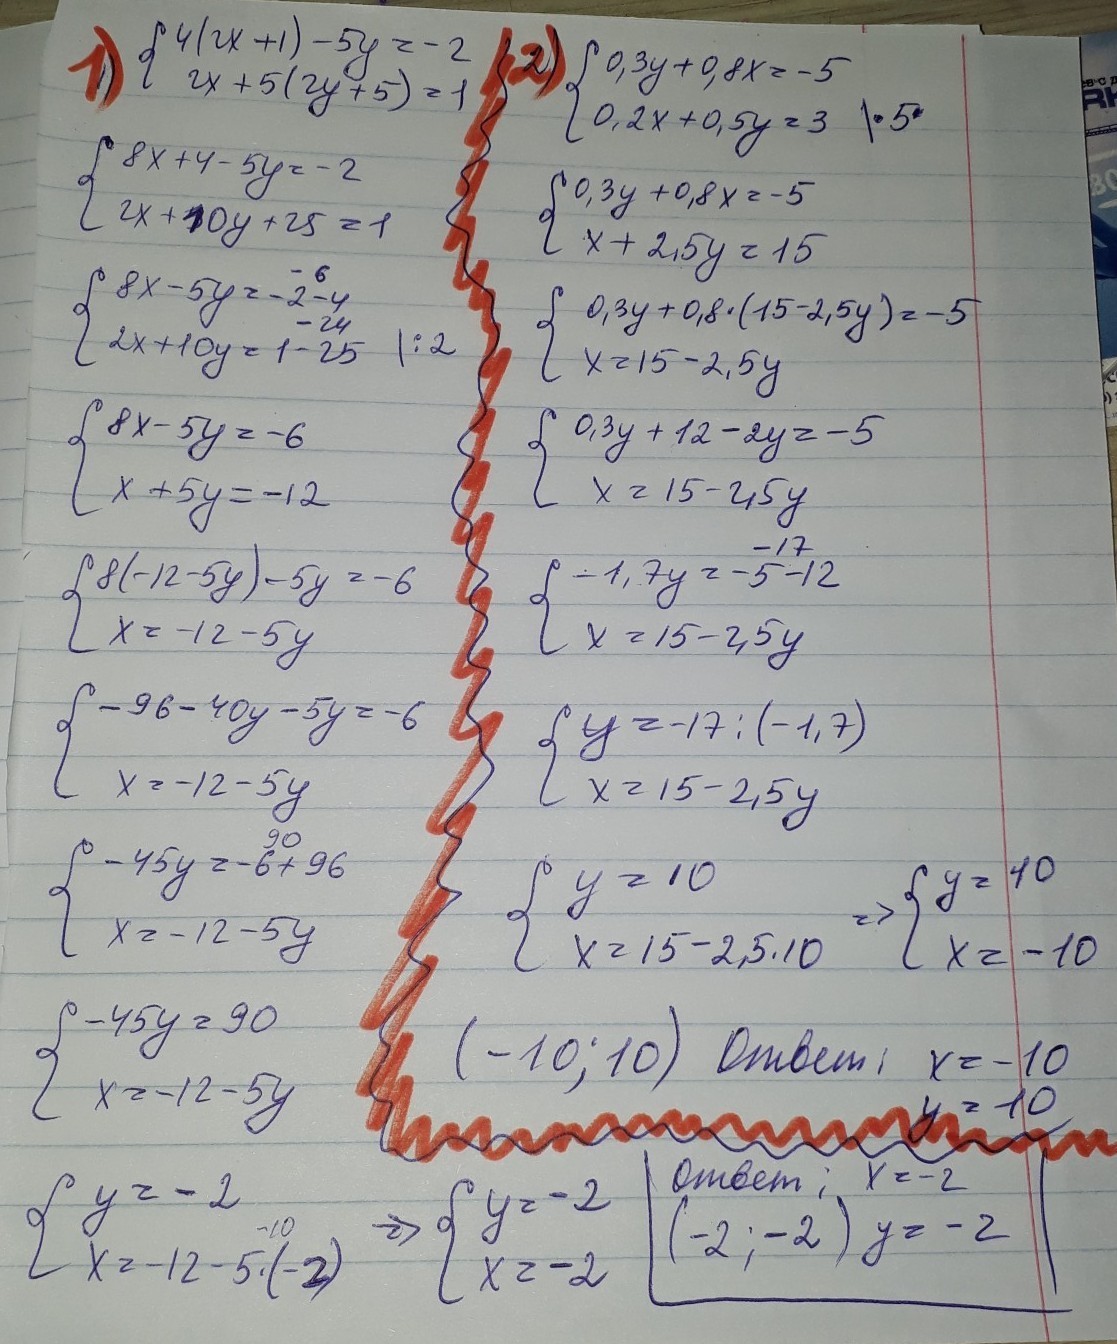 1) 4(2x+1)-5y=-2
2x+5(2y+5)=1
8x+4-5y=-2
2x+10y+25=1
-6
8x-5y=-2-4
-24
2x+10y=1-25 |:2
8x-5y=-6
x+5y=-12
8(-12-5y)-5y=-6
x=-12-5y
-96-40y-5y=-6
x=-12-5y
90
-45y=-6+96
x=-12-5y
-45y=90
x=-12-5y
y=-2
-10
x=-12-5·(-2)
=> y=-2
x=-2
Ответ: x=-2
(-2;-2) y=-2
2) 0,3y+0,8x=-5
0,2x+0,5y=3 |·5
0,3y+0,8x=-5
x+2,5y=15
0,3y+0,8·(15-2,5y)=-5
x=15-2,5y
0,3y+12-2y=-5
x=15-2,5y
-17
-1,7y=-5-12
x=15-2,5y
y=-17:(-1,7)
x=15-2,5y
y=10
x=15-2,5·10
=> y=10
x=-10
(-10;10) Ответ: x=-10
y=10